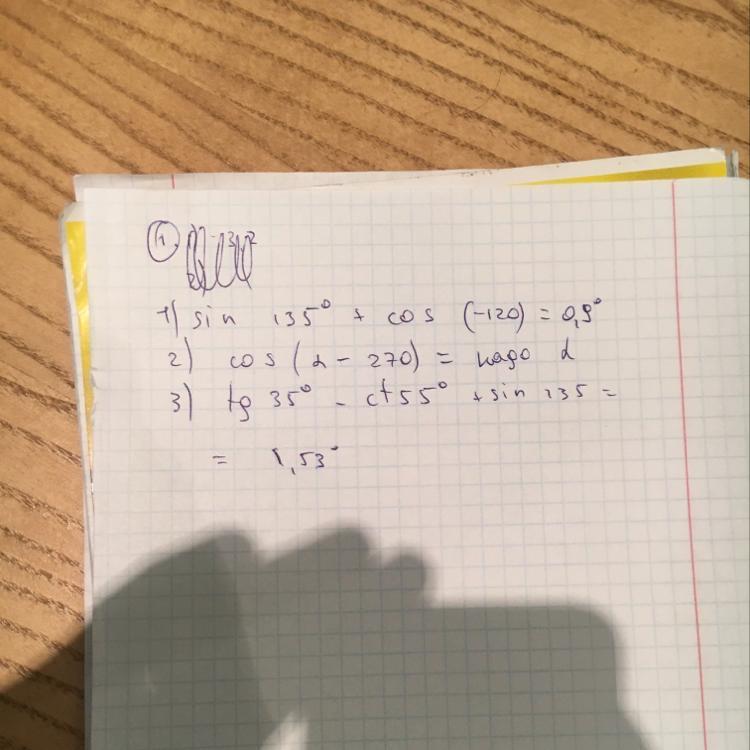 1
1) sin 135° + cos (-120) = 0,9°
2) cos (α - 270) = надо α
3) tg 35° - ct 55° + sin 135 =
= 1,53°